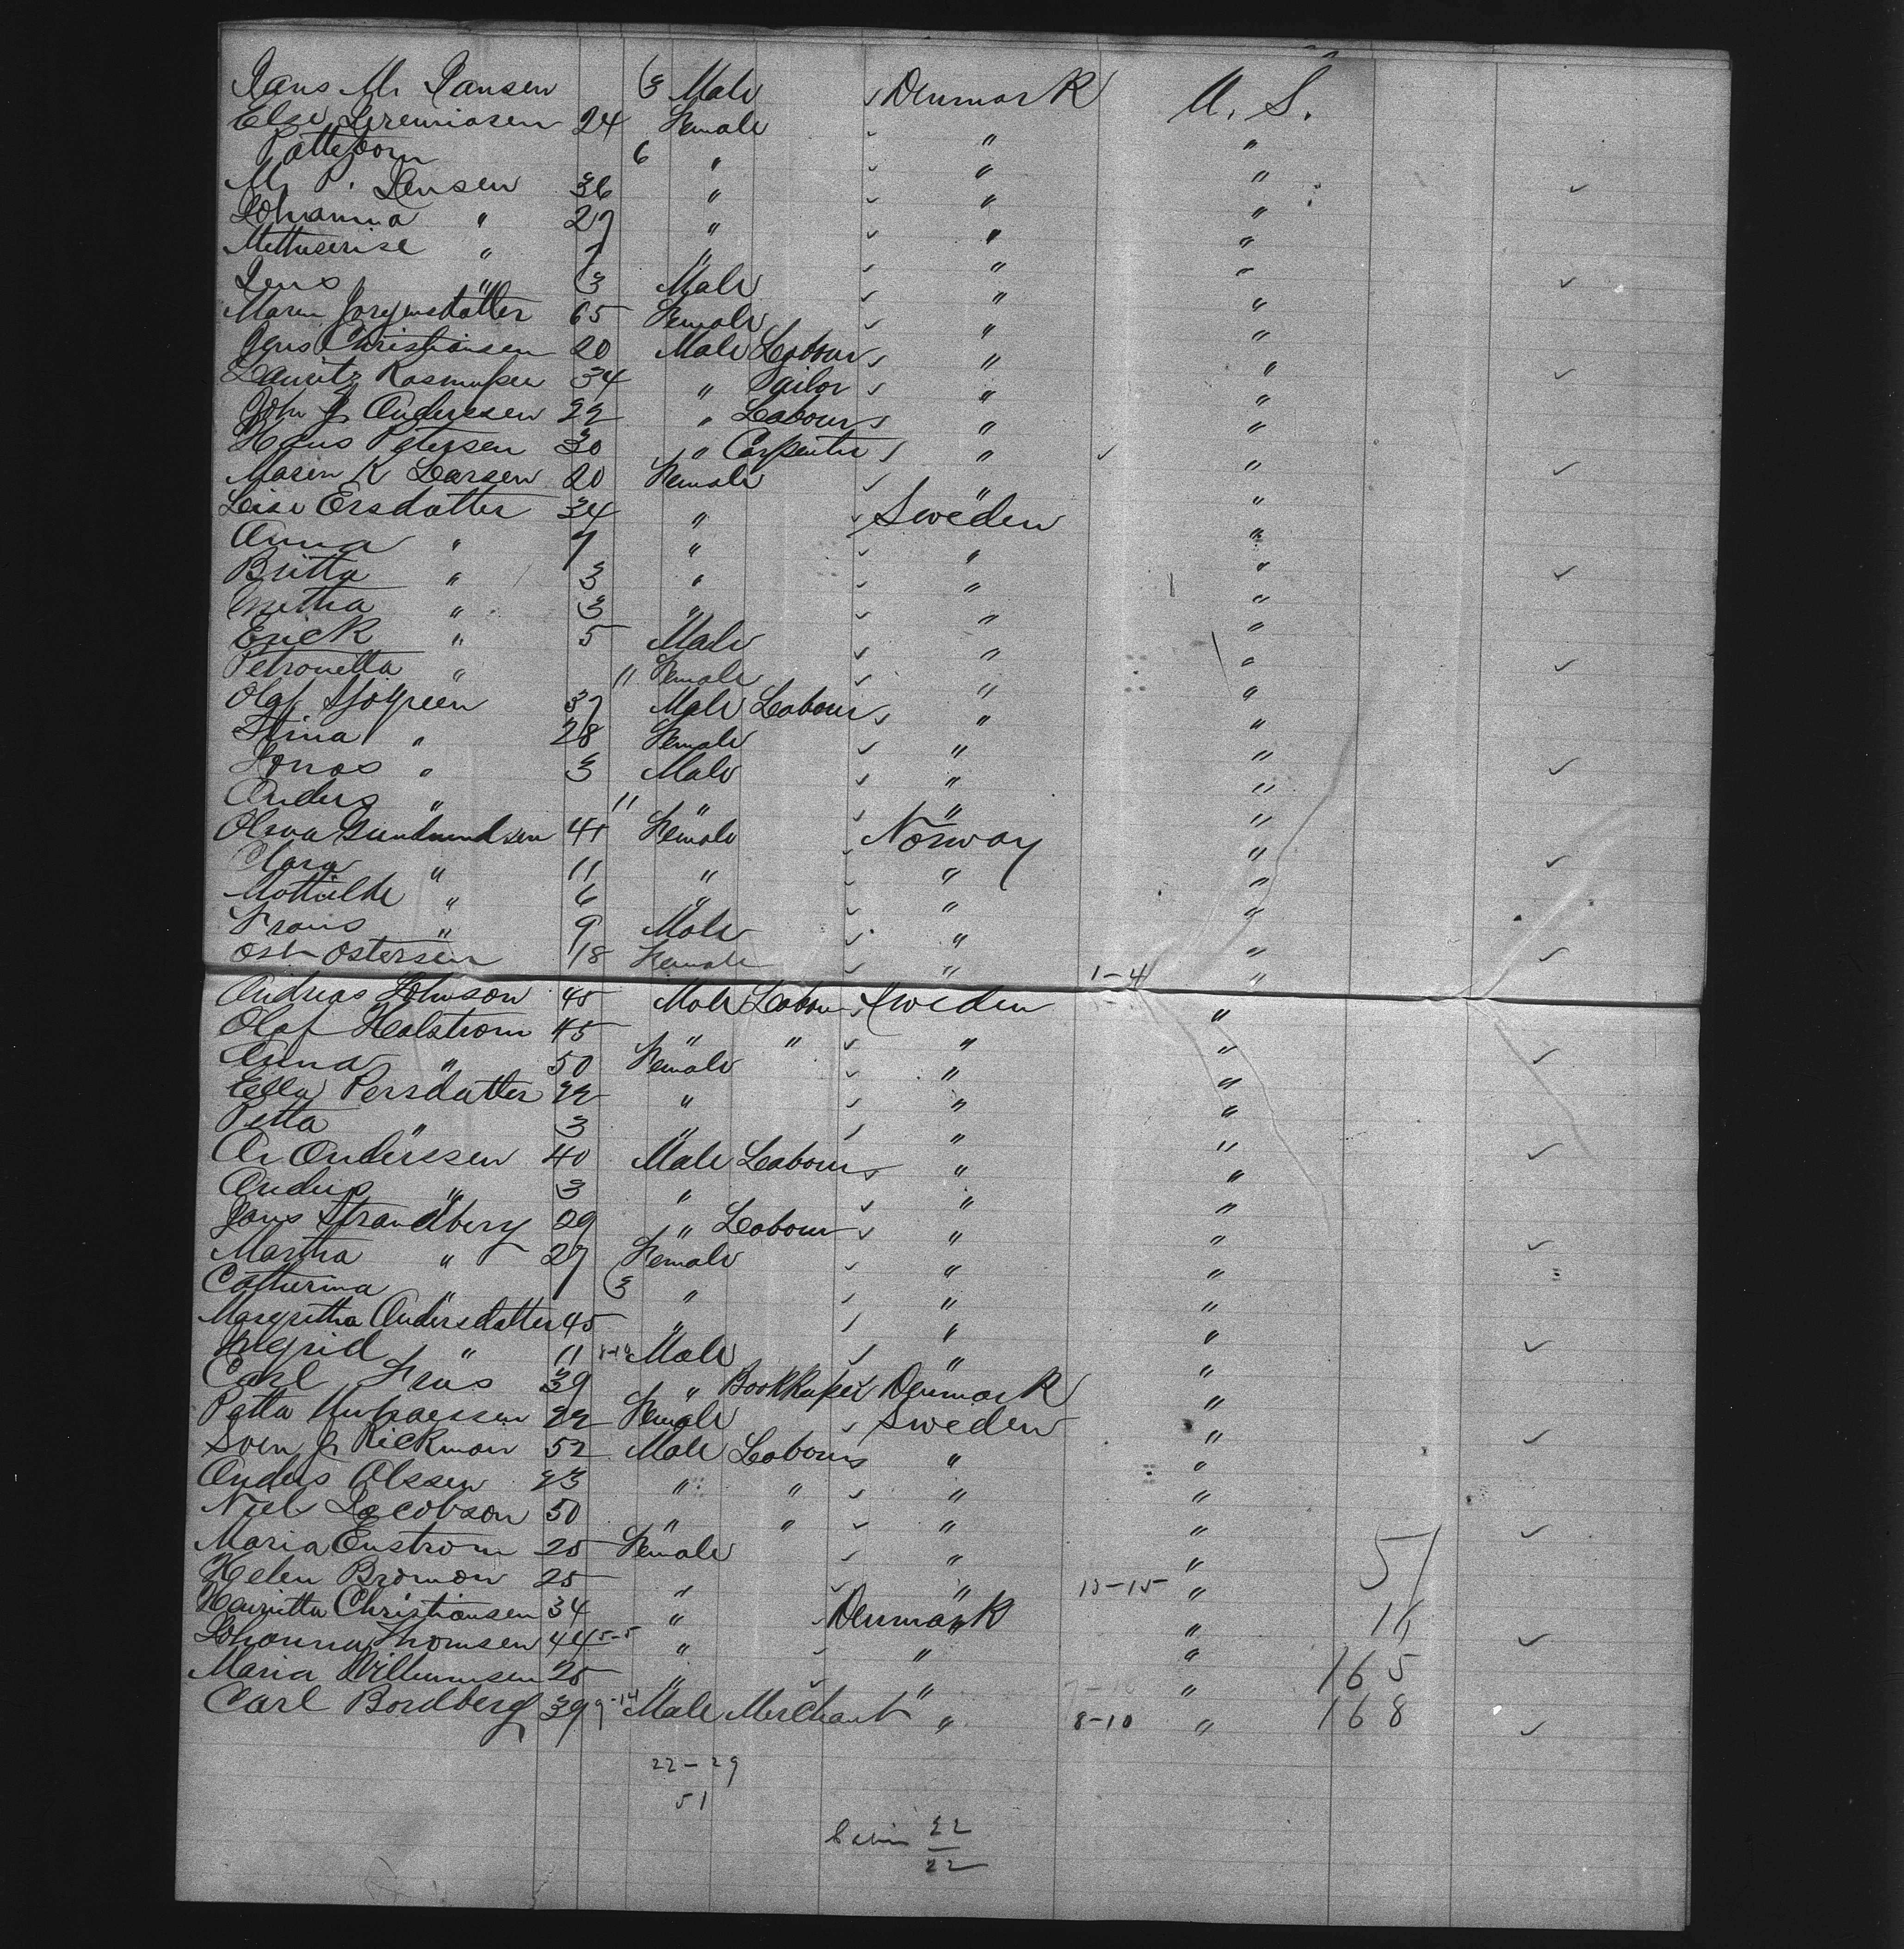 Jans M. Jansen 3 Male ✓ Denmark U. S.
Else Jeremiasen 24 Female ✓ " "
6 " ✓ " "
M. P. Jensen 36 " ✓ " " ✓
Johanna " 27 " ✓ " "
" 7 " ✓ " "
Jens " 3 Male ✓ " " ✓
Maren Jorgensdatter 65 Female ✓ " "
Jens Christiansen 20 Male Labour ✓ " "
Lauritz Rasmussen 34 " Sailor ✓ " " ✓
John J. Anderssen 22 " Labour ✓ " "
Hans Petersen 30 " Carpenter ✓ " ✓ "
Maren K Larsen 20 Female ✓ " " ✓
Lise Ersdatter 34 " ✓ Sweden "
Anna " 7 " ✓ " "
Britta " 3 " ✓ " " ✓
" 3 " ✓ " "
Erick " 5 Male ✓ " "
Petronetta " 11 Female ✓ " " ✓
Olaf Sjogreen 37 Male Labour ✓ " "
Stina " 28 Female ✓ " "
Jonas " 3 Male ✓ " " ✓
Anders " 11 " ✓ " "
Gundmundsen 41 Female ✓ Norway "
Clara " 11 " ✓ " " ✓
Mathilde " 6 " ✓ " "
Frans " 9 Male ✓ " "
Ostersen 18 Female ✓ " 1-4 " ✓
Andreas Johnson 45 Male Labour ✓ Sweden "
Olaf Halstrom 45 " " ✓ " "
Anna " 50 Female ✓ " " ✓
Ella Persdatter 22 " ✓ " "
Petta " 3 " ✓ " "
A. Anderssen 40 Male Labour ✓ " " ✓
Anders " 3 " ✓ " "
Jans Strandberg 29 " Labour ✓ " "
Martha " 27 Female ✓ " " ✓
Catherina " 3 " ✓ " "
Margretha Andersdatter 45 " ✓ " "
Ingrid " 11 Male ✓ " " ✓
Carl Friis 39 " Bookkeeper Denmark "
Petta 22 Female ✓ Sweden "
Sven J. Rickman 52 Male Labour ✓ " " ✓
Anders Olssen 23 " " ✓ " "
Niels Jacobson 50 " " ✓ " "
Maria Enstrom 25 Female ✓ " " 51 ✓
Helen Broman 25 " ✓ " 13-15 "
Henritta Christiansen 34 " ✓ Denmark " "
Johanna Thomsen 44 5-5 " ✓ " " ✓
Maria Willumsen 25 " ✓ " " 165
Carl Bordberg 39 9-14 Male Merchant " 8-10 " 168 ✓
22-29
51
Cabin 22
22